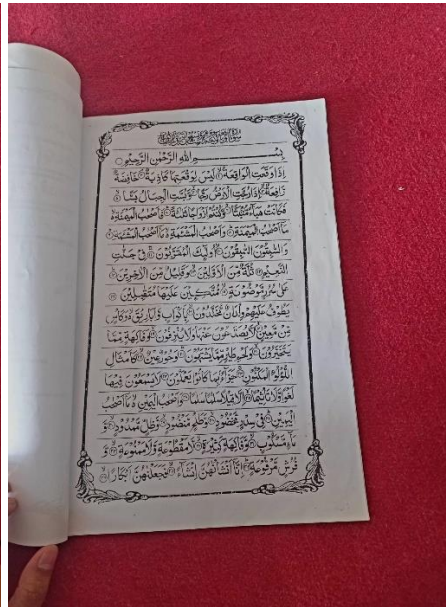 بِسْمِ اللهِ الرَّحْمٰنِ الرَّحِيْمِ
اِذَا وَقَعَتِ الْوَاقِعَةُ لَيْسَ لِوَقْعَتِهَا كَاذِبَةٌ خَافِضَةٌ
رَّافِعَةٌ اِذَا رُجَّتِ الْاَرْضُ رَجًّا وَّبُسَّتِ الْجِبَالُ بَسًّا
فَكَانَتْ هَبَآءً مُّنْۢبَثًّا وَّكُنْتُمْ اَزْوَاجًا ثَلٰثَةً فَاَصْحٰبُ الْمَيْمَنَةِ
مَآ اَصْحٰبُ الْمَيْمَنَةِ وَاَصْحٰبُ الْمَشْـَٔمَةِ مَآ اَصْحٰبُ الْمَشْـَٔمَةِ
وَالسّٰبِقُوْنَ السّٰبِقُوْنَ اُولٰٓئِكَ الْمُقَرَّبُوْنَ فِيْ جَنّٰتِ
النَّعِيْمِ ثُلَّةٌ مِّنَ الْاَوَّلِيْنَ وَقَلِيْلٌ مِّنَ الْاٰخِرِيْنَ
عَلٰى سُرُرٍ مَّوْضُوْنَةٍ مُّتَّكِـِٕيْنَ عَلَيْهَا مُتَقٰبِلِيْنَ
يَطُوْفُ عَلَيْهِمْ وِلْدَانٌ مُّخَلَّدُوْنَ بِاَكْوَابٍ وَّاَبَارِيْقَ وَكَاْسٍ
مِّنْ مَّعِيْنٍ لَّا يُصَدَّعُوْنَ عَنْهَا وَلَا يُنْزِفُوْنَ وَفَاكِهَةٍ مِّمَّا
يَتَخَيَّرُوْنَ وَلَحْمِ طَيْرٍ مِّمَّا يَشْتَهُوْنَ وَحُوْرٌ عِيْنٌ كَاَمْثَالِ
اللُّؤْلُؤِ الْمَكْنُوْنِ جَزَآءًۢ بِمَا كَانُوْا يَعْمَلُوْنَ لَا يَسْمَعُوْنَ فِيْهَا
لَغْوًا وَّلَا تَاْثِيْمًا اِلَّا قِيْلًا سَلٰمًا سَلٰمًا وَاَصْحٰبُ الْيَمِيْنِ مَآ اَصْحٰبُ
الْيَمِيْنِ فِيْ سِدْرٍ مَّخْضُوْدٍ وَّطَلْحٍ مَّنْضُوْدٍ وَّظِلٍّ مَّمْدُوْدٍ وَّ
مَآءٍ مَّسْكُوْبٍ وَّفَاكِهَةٍ كَثِيْرَةٍ لَّا مَقْطُوْعَةٍ وَّلَا مَمْنُوْعَةٍ وَّ
فُرُشٍ مَّرْفُوْعَةٍ اِنَّآ اَنْشَاْنٰهُنَّ اِنْشَآءً فَجَعَلْنٰهُنَّ اَبْكَارًا